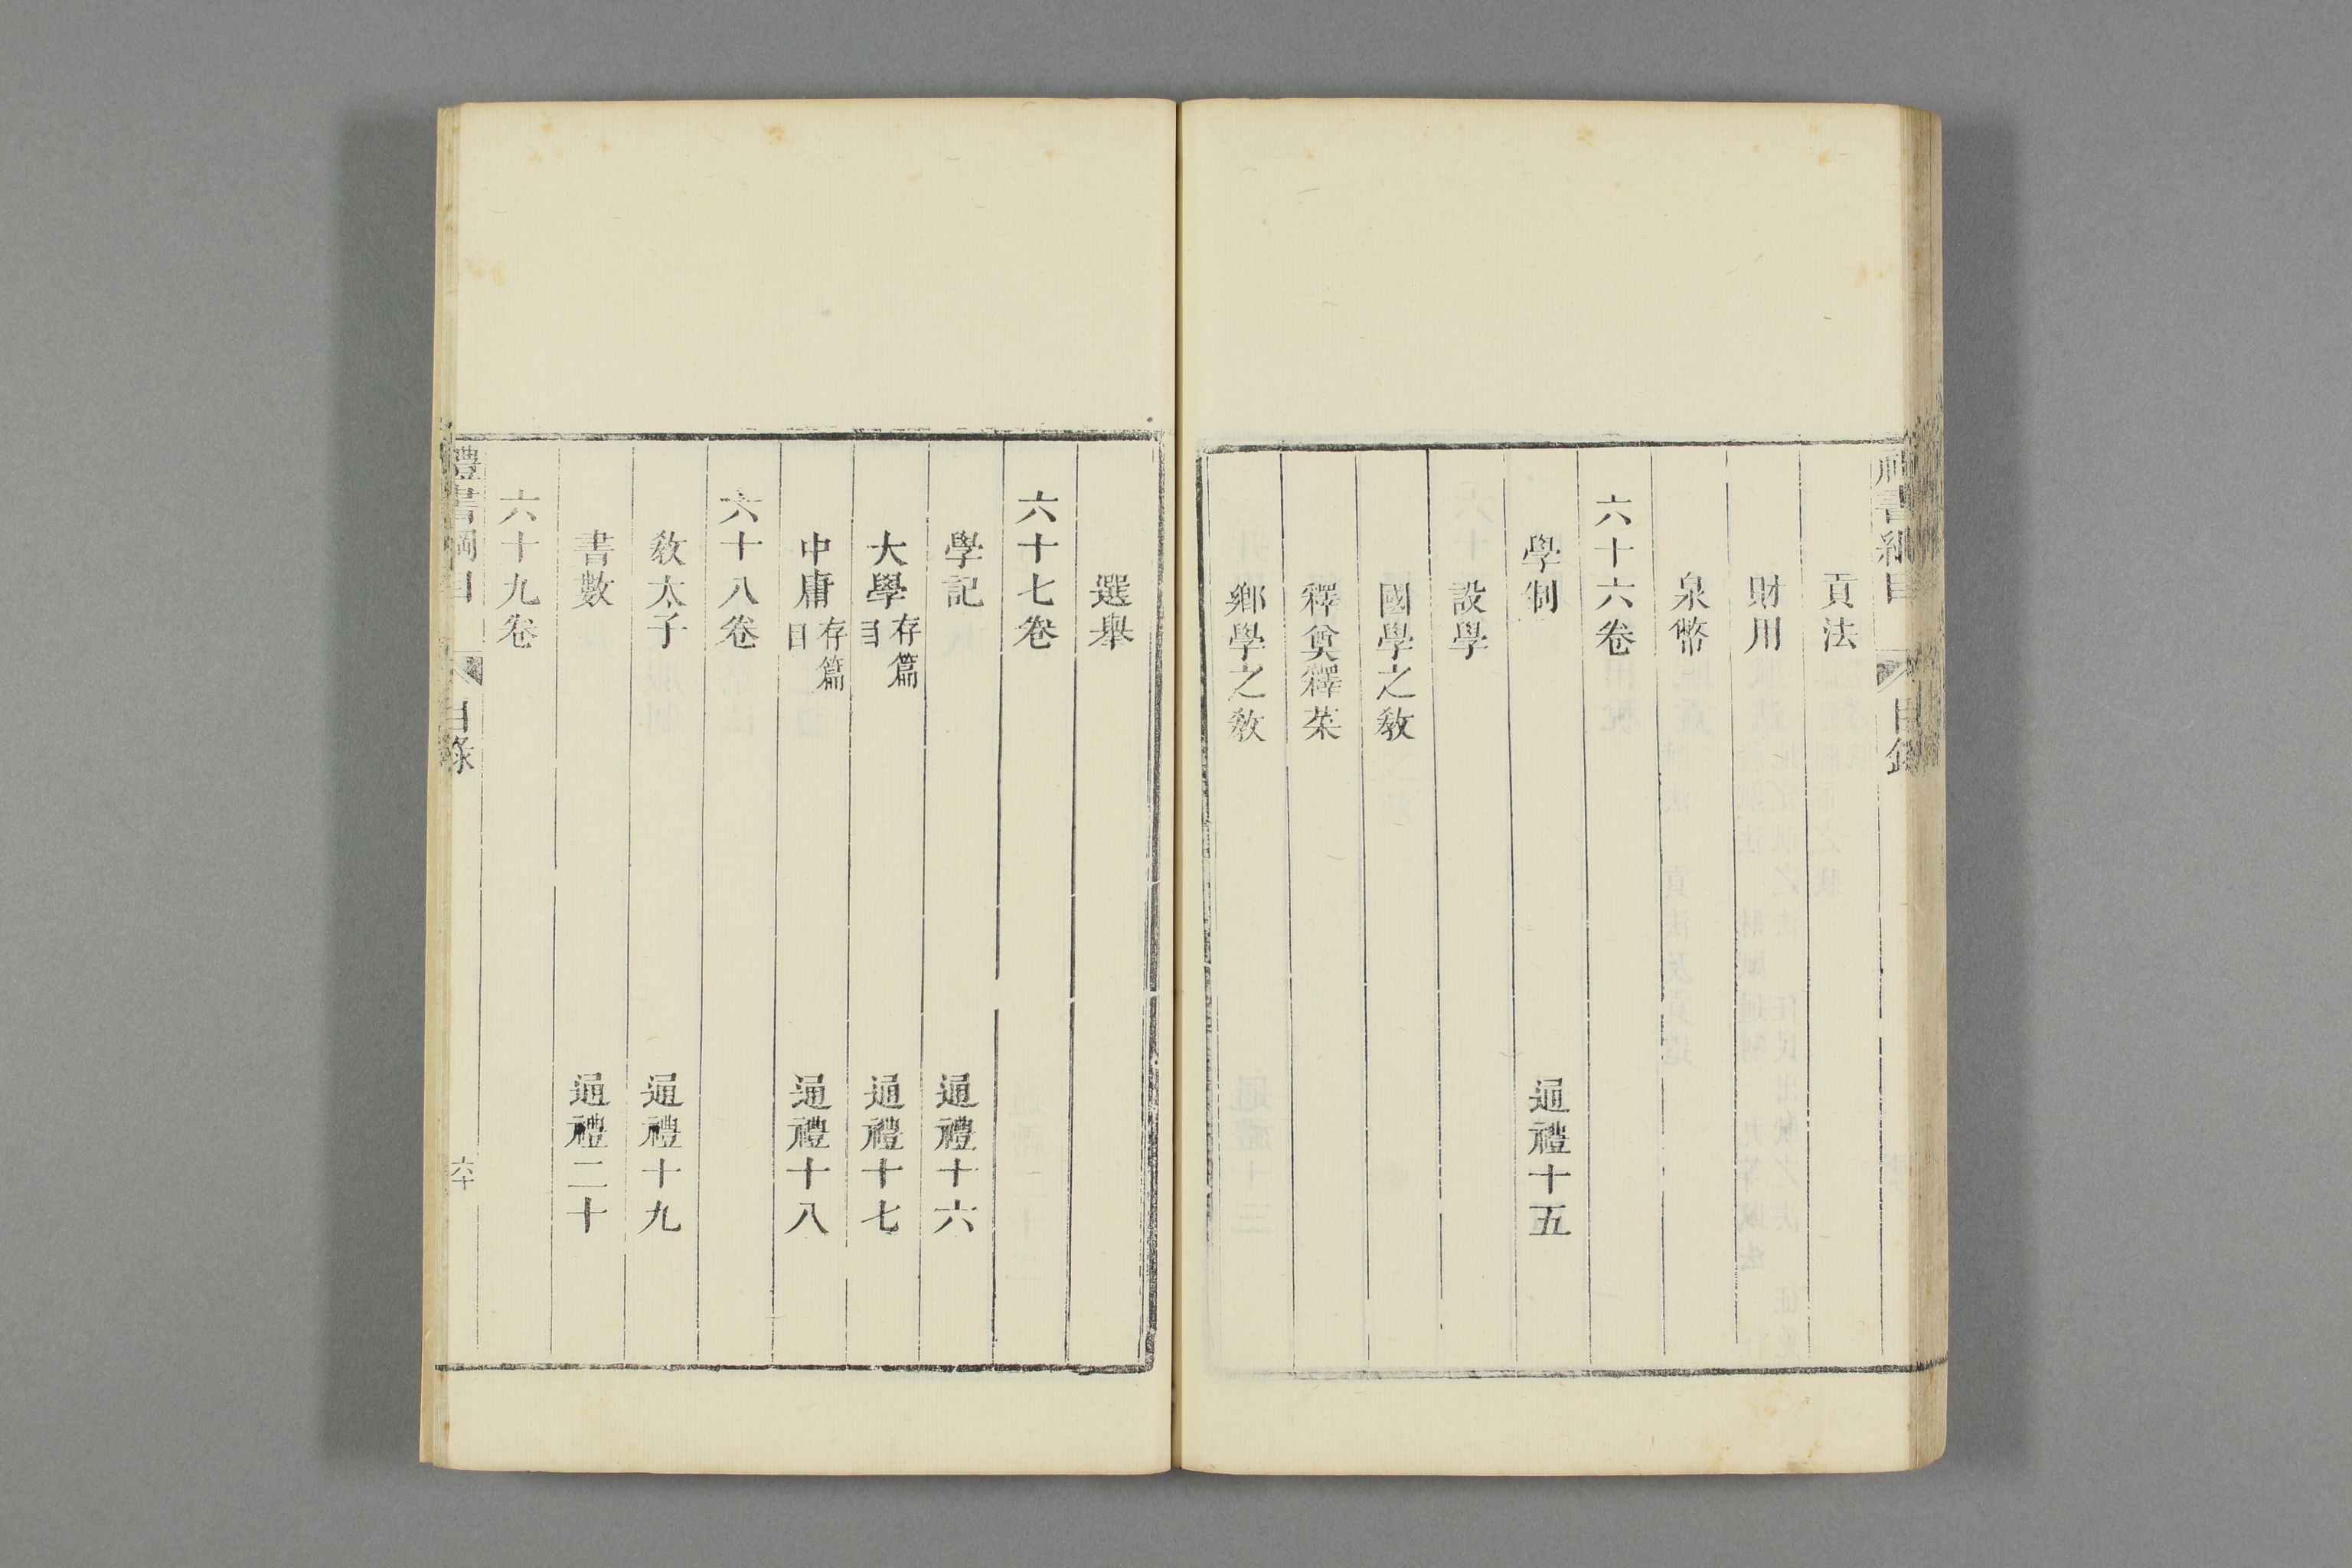 貢法
財用
泉幣
六十六卷
學制 通禮十五
設學
國學之敎
釋奠釋菜
鄉學之敎
選舉
六十七卷
學記 通禮十六
大學存篇目 通禮十七
中庸存篇目 通禮十八
六十八卷
敎太子 通禮十九
書數 通禮二十
六十九卷
禮書綱目 目錄 六十